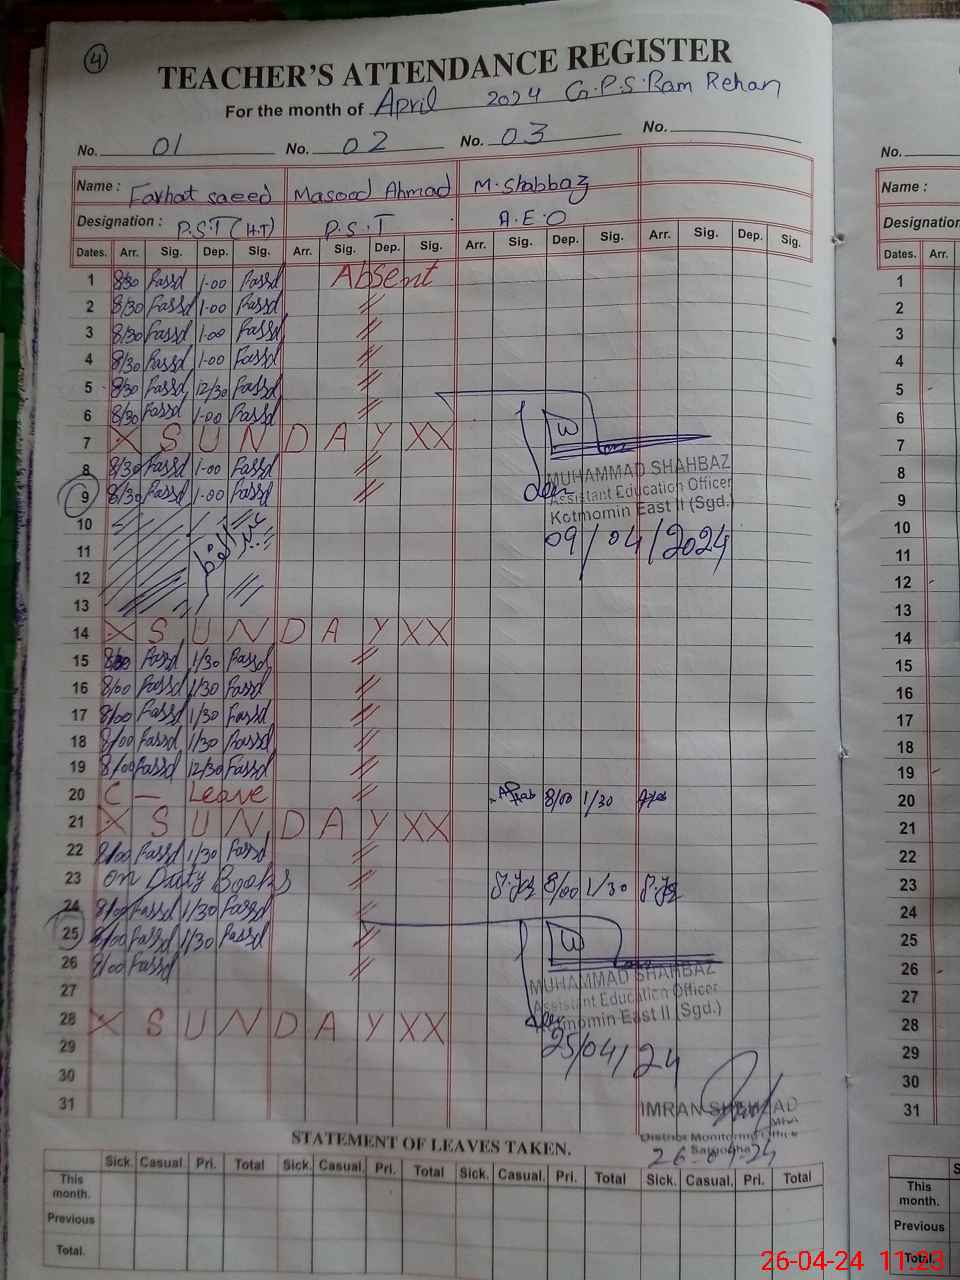 4
TEACHER'S ATTENDANCE REGISTER
For the month of April 2024 G.P.S Ram Rehan
No. 01 No. 02 No. 03 No.
Name : Farhat saeed Masood Ahmad M. Shabbaz
Designation : P.S.T (H.T) P.S.T A.E.O
Dates. Arr. Sig. Dep. Sig. Arr. Sig. Dep. Sig. Arr. Sig. Dep. Sig. Arr. Sig. Dep. Sig.
1 8/30 1-00 Absent
2 8/30 1-00 //
3 8/30 1-00 //
4 8/30 1-00 //
5 8/30 12/30 //
6 8/30 1-00 //
7 X S U N D A Y XX
8 8/30 1-00 //
9 8/30 1-00 //
MUHAMMAD SHAHBAZ
Assistant Education Officer
Kotmomin East II (Sgd.)
09/04/2024
10
11 عید الفطر
12
13
14 X S U N D A Y XX
15 1/30 //
16 8/00 1/30 //
17 8/00 1/30 //
18 8/00 1/30 //
19 8/00 12/30 //
20 C — Leave // 8/00 1/30
21 X S U N D A Y XX
22 8/00 1/30 //
23 on Duty Books // 8/00 1/30
24 8/00 1/30 //
25 8/00 1/30 //
26 8/00 //
27
28 X S U N D A Y XX
29
30
31
MUHAMMAD SHAHBAZ
Assistant Education Officer
Kotmomin East II (Sgd.)
25/04/24
IMRAN SHAHZAD
District Monitoring Office
Sargodha
26-04-24
STATEMENT OF LEAVES TAKEN.
Sick. Casual. Pri. Total Sick. Casual. Pri. Total Sick. Casual. Pri. Total Sick. Casual. Pri. Total
This month.
Previous
Total.
No.
Name :
Designation
Dates. Arr.
1
2
3
4
5
6
7
8
9
10
11
12
13
14
15
16
17
18
19
20
21
22
23
24
25
26
27
28
29
30
31
S
This month.
Previous
Total.
26-04-24 11:23